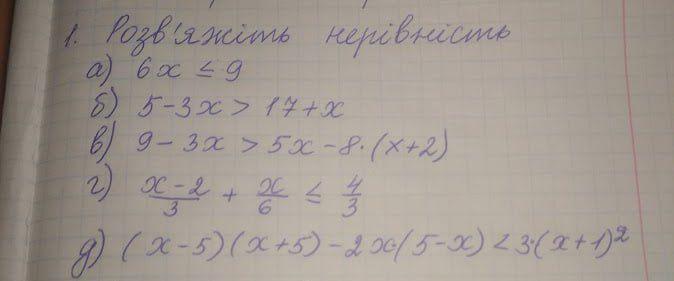 1. Розв'яжіть нерівність
а) 6x ≤ 9
б) 5-3x > 17+x
в) 9-3x > 5x-8·(x+2)
г) x-2/3 + x/6 ≤ 4/3
д) (x-5)(x+5)-2x(5-x) < 3·(x+1)²